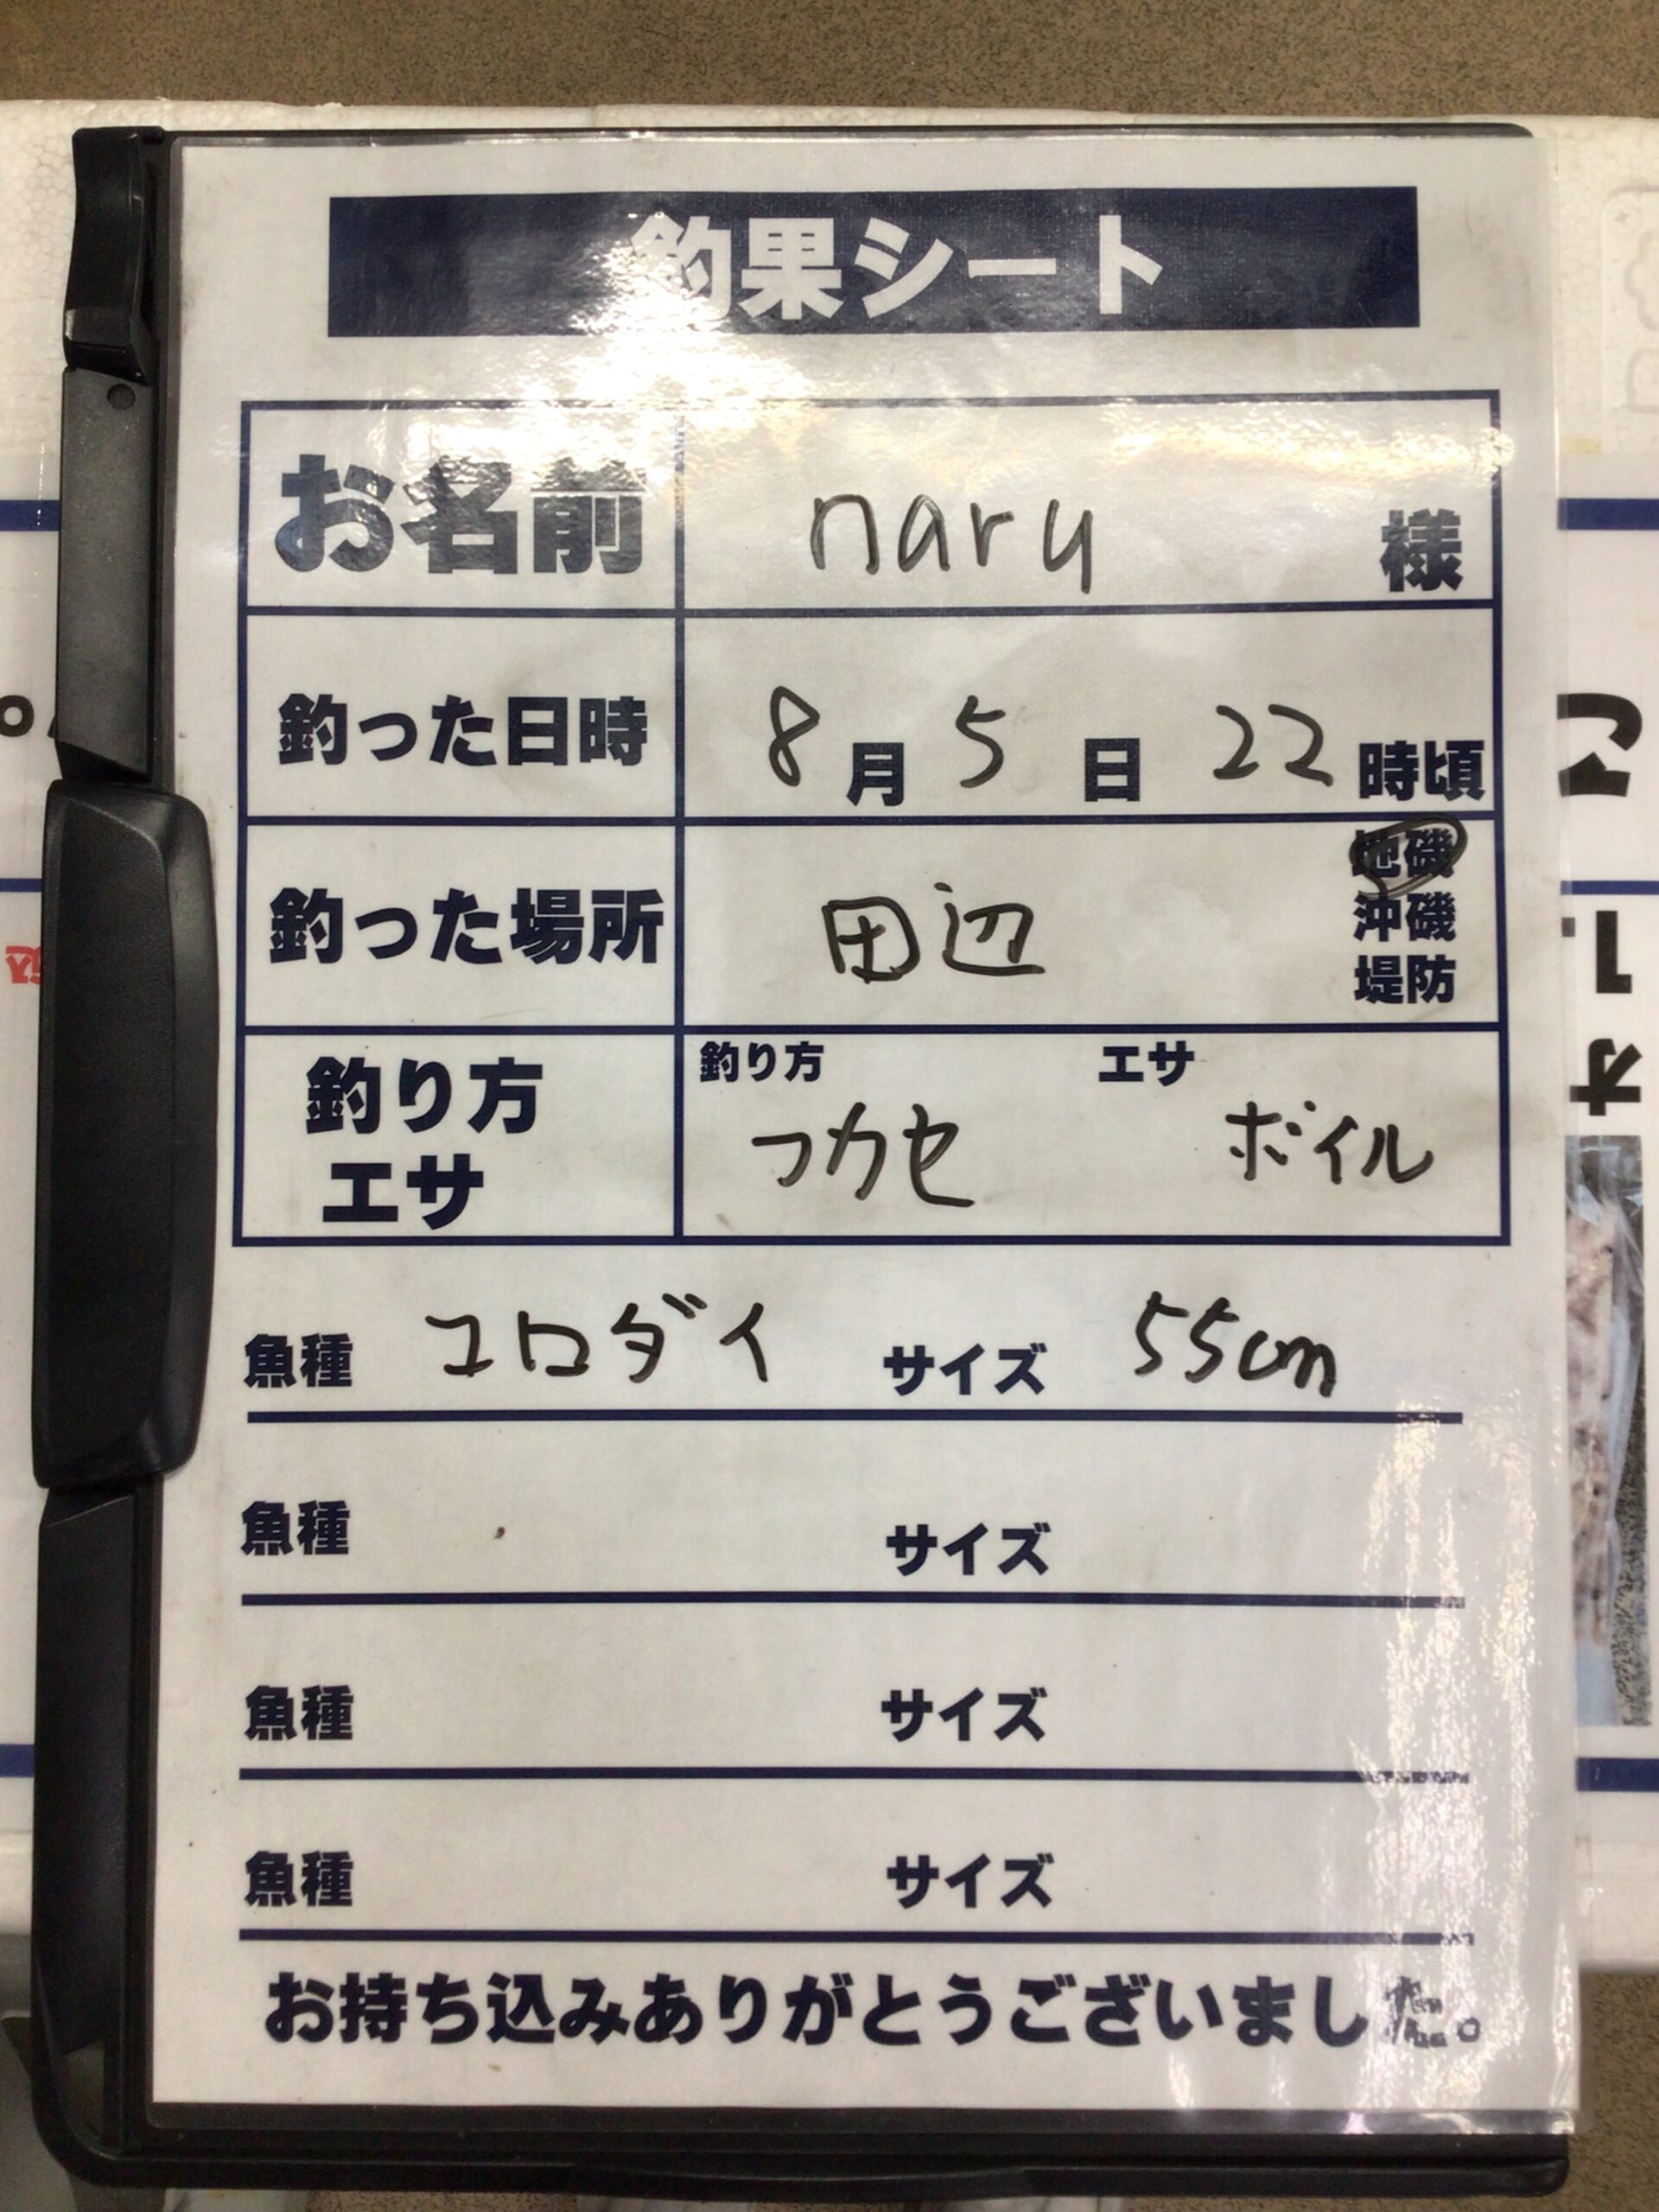 釣果シート
お名前 naru 様
釣った日時 8月5日 22時頃
釣った場所 田辺 地磯
沖磯
堤防
釣り方 エサ
釣り方 フカセ ボイル
エサ
魚種 コロダイ サイズ 55cm
魚種 サイズ
魚種 サイズ
魚種 サイズ
お持ち込みありがとうございました。